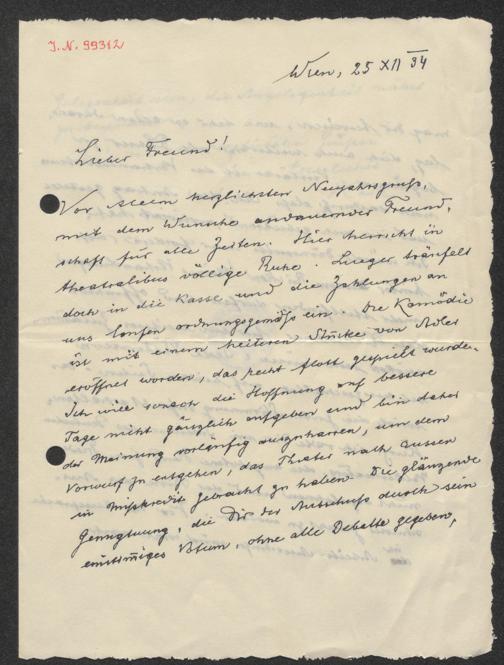 J.N. 99312
Wien, 25 XII 34
Lieber Freund!
Vor allem herzlichsten Neujahrsgruss,
mit dem Wunsche andauernder Freund,
schaft für alle Zeiten. Hier herrscht in
theatralibus völlige Ruhe. Lueger träufelt
doch in die Kasse und die Zahlungen an
uns laufen ordnungsgemäß ein. Die Komödie
ist mit einem heiteren Stücke von Adler
eröffnet worden, das recht flott gespielt wurde.
Ich will sonach die Hoffnung auf bessere
Tage nicht gänzlich aufgeben und bin daher
der Meinung vorläufig auszuharren, um dem
Vorwurf zu entgehen, das Theater nach aussen
in Misskredit gebracht zu haben. Die glänzende
Genugtuung, die Dir der Ausschuß durch sein
einstimmiges Votum, ohne alle Debatte gegeben,